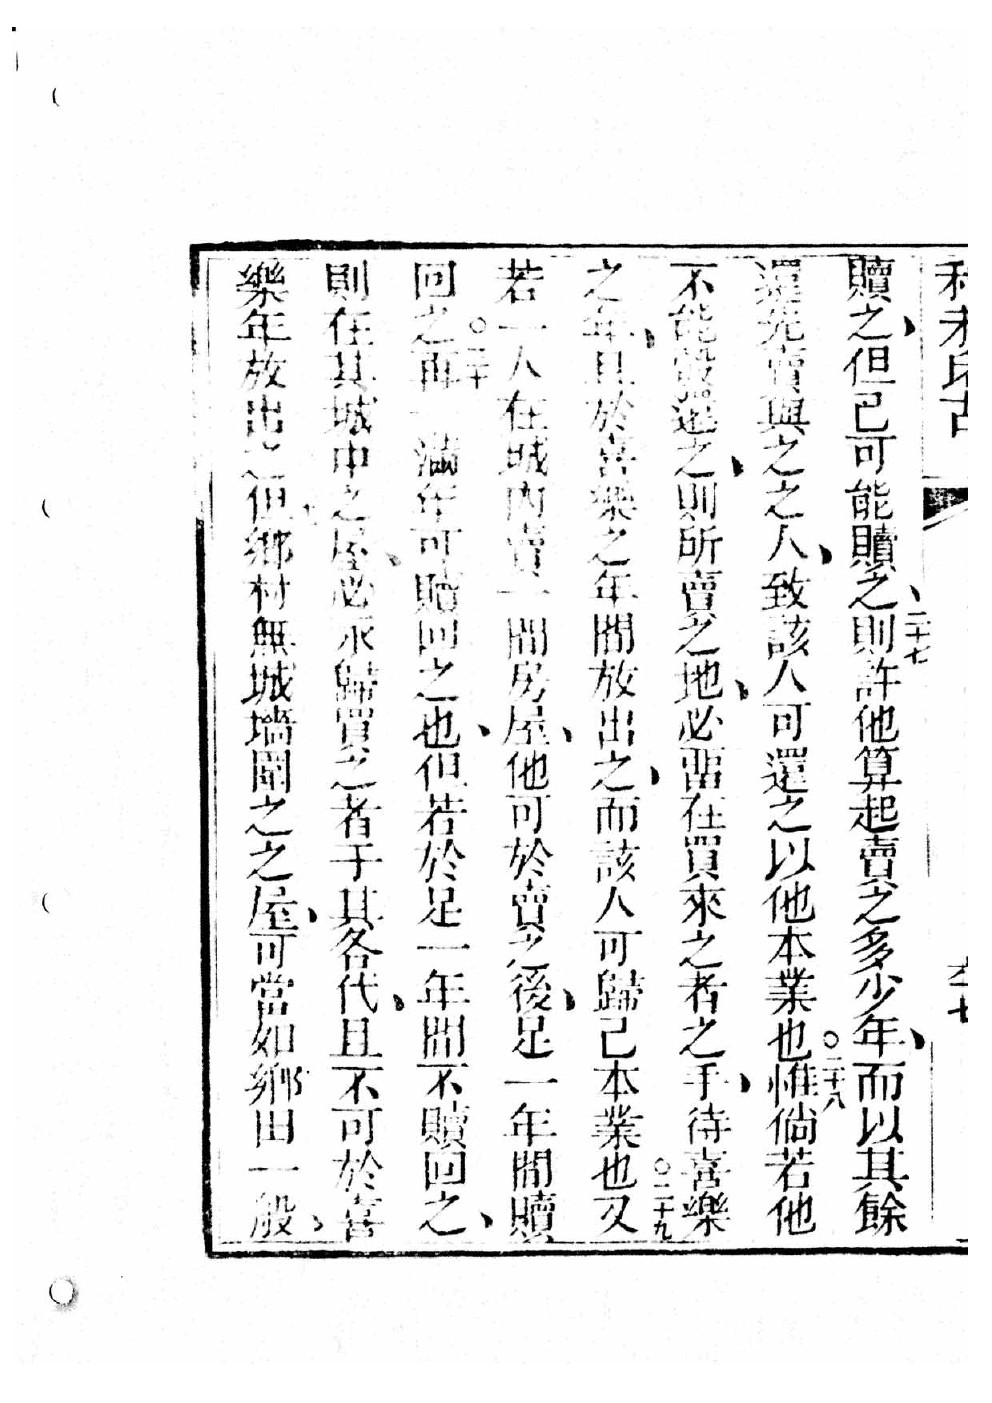 贖之、但己可能贖之、二十七則許他算起賣之多少年、而以其餘
還先賣與之之人、致該人可還之以他本業也○二十八惟倘若他
不能設還之、則所賣之地、必畱在買來之者之手、待喜樂
之年、且於喜樂之年間放出之、而該人可歸己本業也○二十九又
若一人在城內賣一間房屋、他可於賣之後、足一年間贖
回之○三十再 滿年可贖回之也、但若於足一年間不贖回之、
則在其城中之屋、必永歸買之者于其各代、且不可於喜
樂年放出之但鄉村無城墻圍之之屋、可當如鄉田一般、